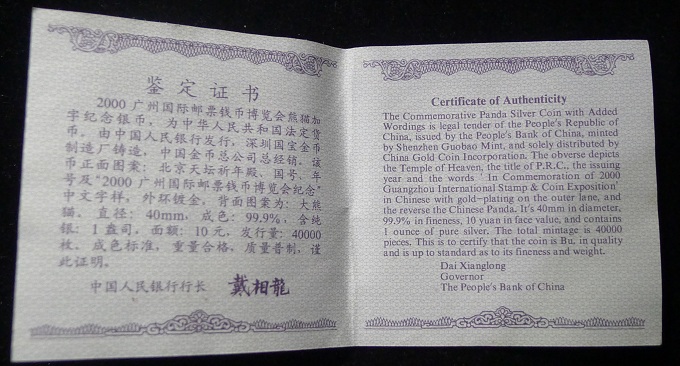 鉴定证书
2000广州国际邮票钱币博览会熊猫加
字纪念银币，为中华人民共和国法定货
币。由中国人民银行发行，深圳国宝金币
制造厂铸造，中国金币总公司总经销。该
币正面图案：北京天坛祈年殿、国号、年
号及“2000广州国际邮票钱币博览会纪念”
中文字样，外环镀金，背面图案为：大熊
猫。直径：40mm，成色：99.9%，含纯
银：1盎司，面额：10元，发行量：40000
枚。成色标准，重量合格，质量普制，谨
此证明。
中国人民银行行长 戴相龍
Certificate of Authenticity
The Commemorative Panda Silver Coin with Added
Wordings is legal tender of the People's Republic of
China, issued by the People's Bank of China, minted
by Shenzhen Guobao Mint, and solely distributed by
China Gold Coin Incorporation. The obverse depicts
the Temple of Heaven, the title of P.R.C., the issuing
year and the words ' In Commemoration of 2000
Guangzhou International Stamp & Coin Exposition'
in Chinese with gold-plating on the outer lane, and
the reverse the Chinese Panda. It's 40mm in diameter,
99.9% in fineness, 10 yuan in face value, and contains
1 ounce of pure silver. The total mintage is 40000
pieces. This is to certify that the coin is Bu. in quality
and is up to standard as to its fineness and weight.
Dai Xianglong
Governor
The People's Bank of China